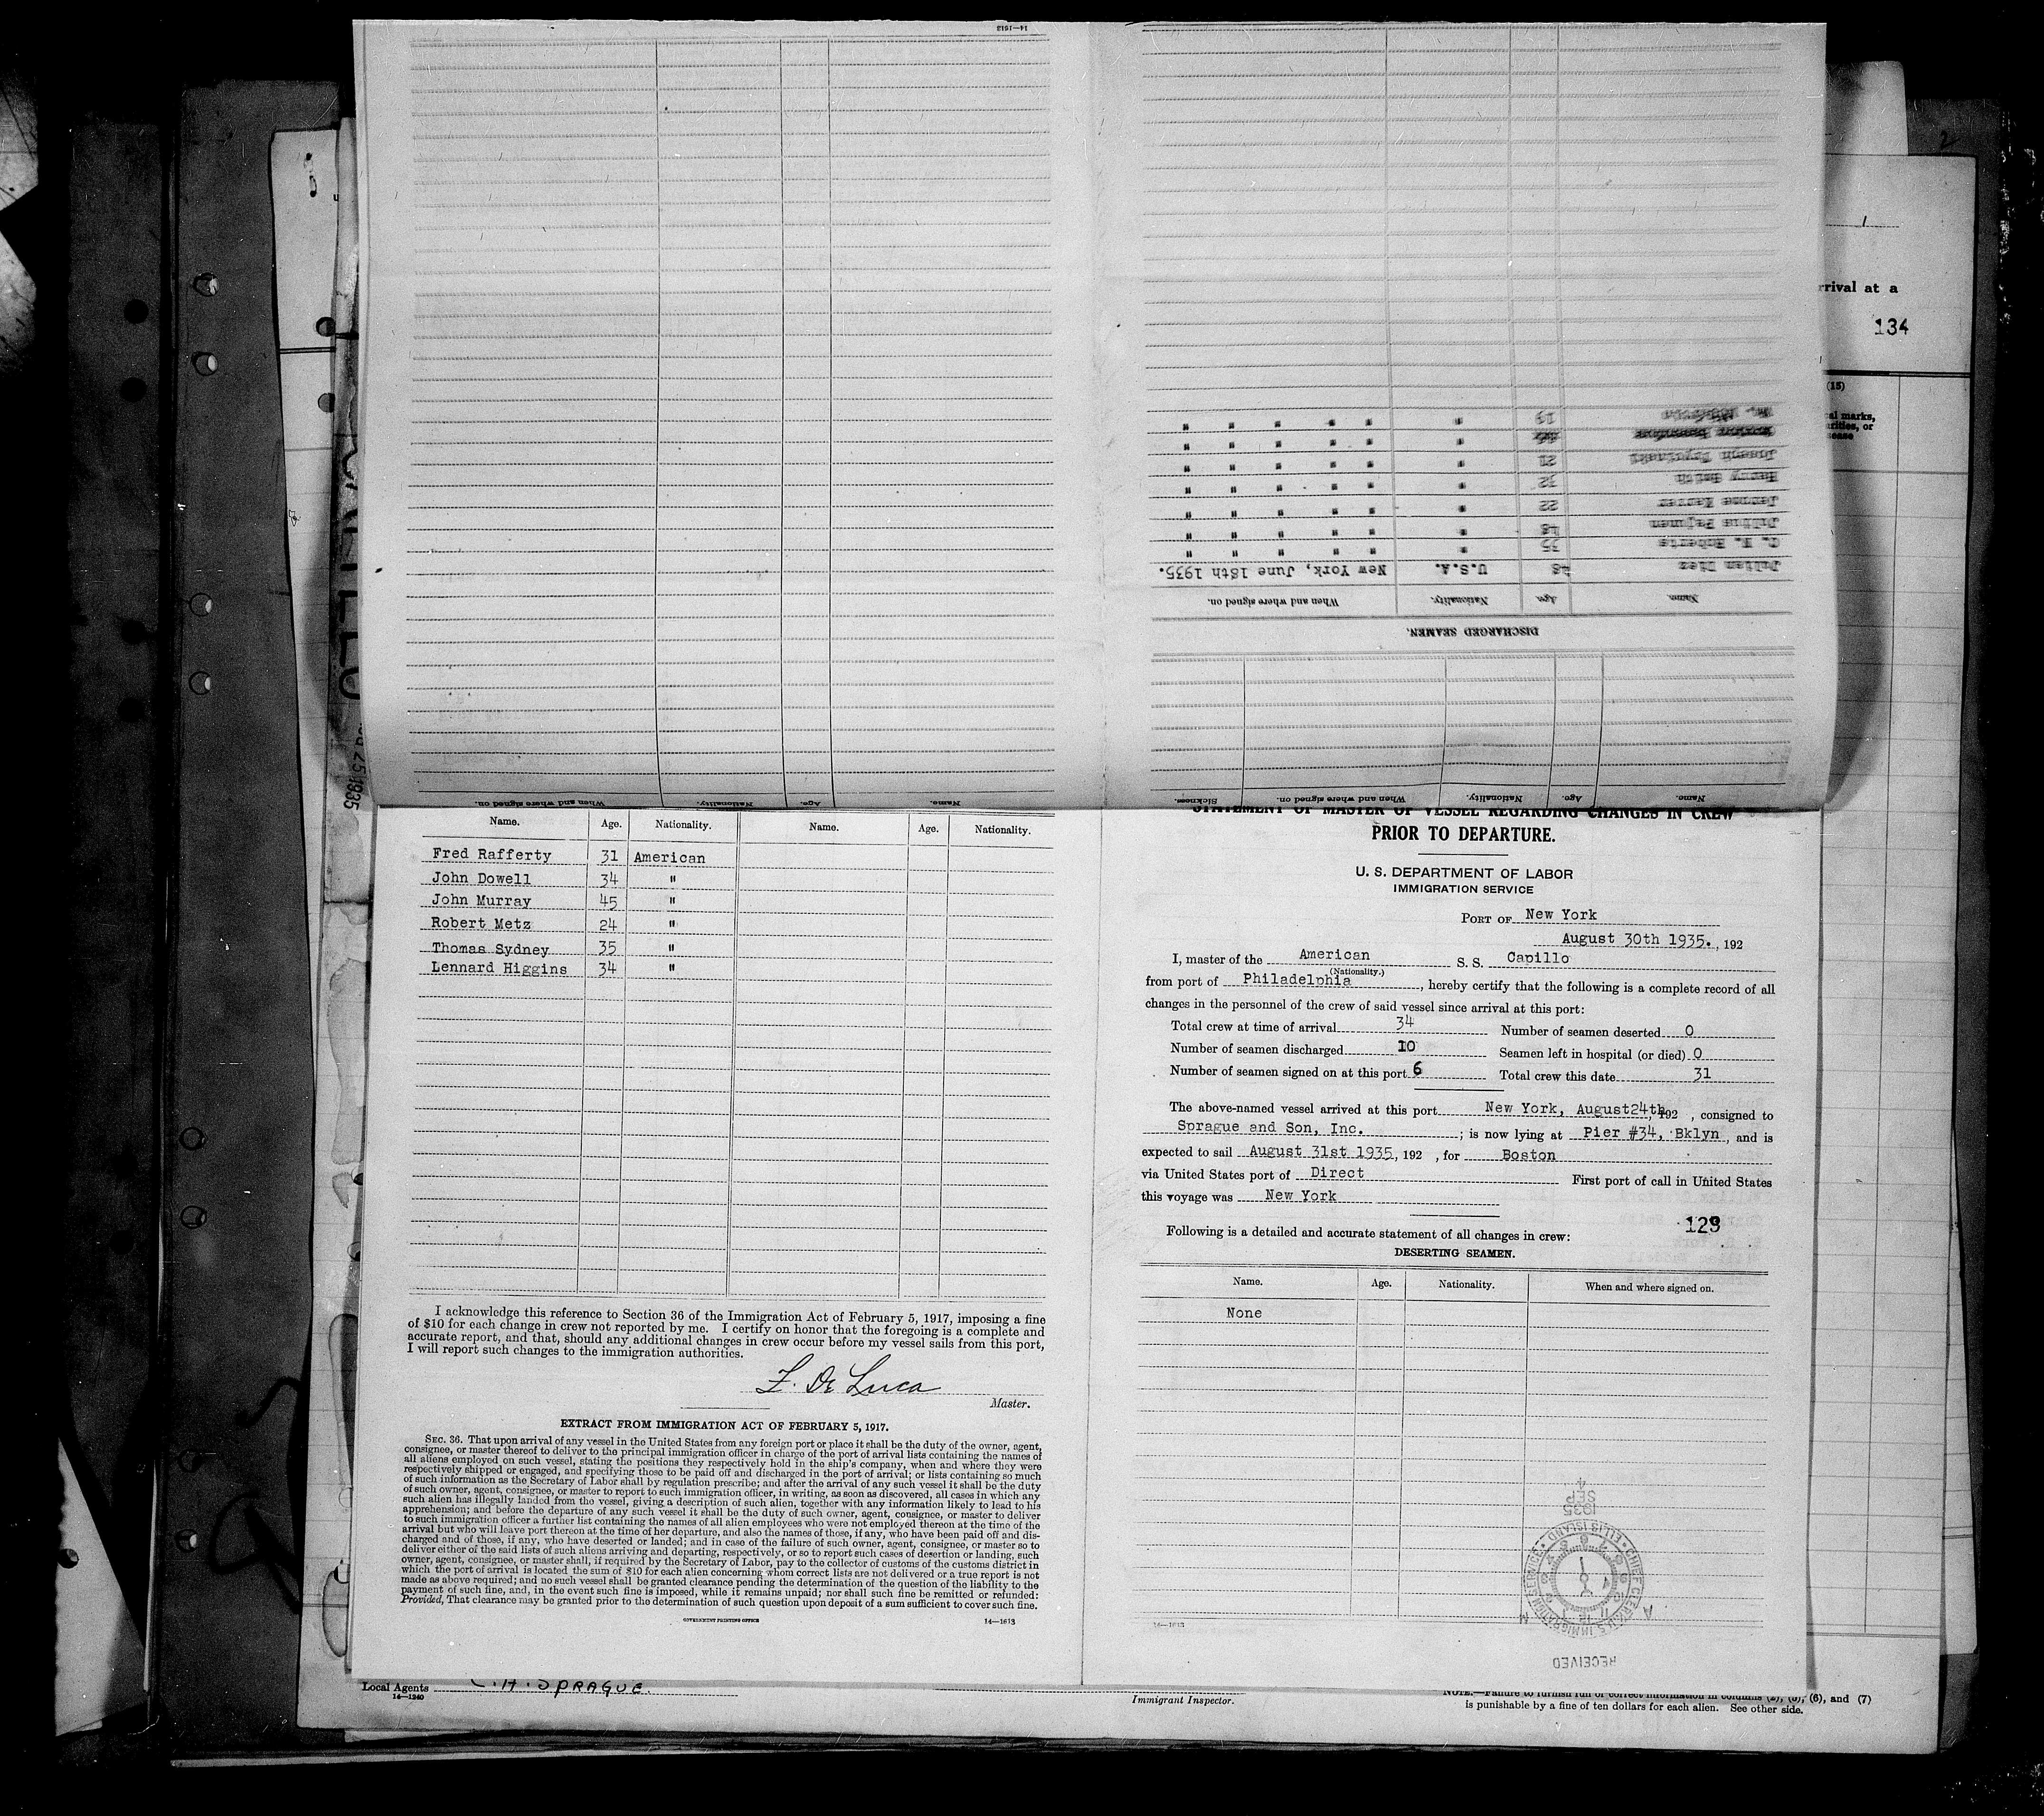 14—1513
Name. Age. Nationality. When and where signed on.
Name. Age. Nationality. When and where signed on. Sickness.
DISCHARGED SEAMEN.
Name. Age. Nationality. When and where signed on.
Julian Diez 48 U.S.A. New York, June 18th 1935.
C. E. Roberts 35 " " " " " "
Julius Pajunen 48 " " " " " "
Jerome Karver 22 " " " " " "
Harry Smith 32 " " " " " "
Joseph 21 " " " " " "
" " " " " "
Wm. 19 " " " " " "
2
1
rrival at a
134
(15)
al marks,
arities, or
sease
25 1935
Name. Age. Nationality. Name. Age. Nationality.
Fred Rafferty 31 American
John Dowell 34 "
John Murray 45 "
Robert Metz 24 "
Thomas Sydney 35 "
Lennard Higgins 34 "
I acknowledge this reference to Section 36 of the Immigration Act of February 5, 1917, imposing a fine
of $10 for each change in crew not reported by me. I certify on honor that the foregoing is a complete and
accurate report, and that, should any additional changes in crew occur before my vessel sails from this port,
I will report such changes to the immigration authorities.
F. De Luca
Master.
EXTRACT FROM IMMIGRATION ACT OF FEBRUARY 5, 1917.
SEC. 36. That upon arrival of any vessel in the United States from any foreign port or place it shall be the duty of the owner, agent,
consignee, or master thereof to deliver to the principal immigration officer in charge of the port of arrival lists containing the names of
all aliens employed on such vessel, stating the positions they respectively hold in the ship's company, when and where they were
respectively shipped or engaged, and specifying those to be paid off and discharged in the port of arrival; or lists containing so much
of such information as the Secretary of Labor shall by regulation prescribe; and after the arrival of any such vessel it shall be the duty
of such owner, agent, consignee, or master to report to such immigration officer, in writing, as soon as discovered, all cases in which any
such alien has illegally landed from the vessel, giving a description of such alien, together with any information likely to lead to his
apprehension; and before the departure of any such vessel it shall be the duty of such owner, agent, consignee, or master to deliver
to such immigration officer a further list containing the names of all alien employees who were not employed thereon at the time of the
arrival but who will leave port thereon at the time of her departure, and also the names of those, if any, who have been paid off and dis-
charged and of those, if any, who have deserted or landed; and in case of the failure of such owner, agent, consignee, or master so to
deliver either of the said lists of such aliens arriving and departing, respectively, or so to report such cases of desertion or landing, such
owner, agent, consignee, or master shall, if required by the Secretary of Labor, pay to the collector of customs of the customs district in
which the port of arrival is located the sum of $10 for each alien concerning whom correct lists are not delivered or a true report is not
made as above required; and no such vessel shall be granted clearance pending the determination of the question of the liability to the
payment of such fine, and, in the event such fine is imposed, while it remains unpaid; nor shall such fine be remitted or refunded:
Provided, That clearance may be granted prior to the determination of such question upon deposit of a sum sufficient to cover such fine.
GOVERNMENT PRINTING OFFICE 14—1613
STATEMENT OF MASTER OF VESSEL REGARDING CHANGES IN CREW
PRIOR TO DEPARTURE.
U. S. DEPARTMENT OF LABOR
IMMIGRATION SERVICE
PORT OF New York
August 30th 1935. , 192
I, master of the American S. S. Capillo
(Nationality.)
from port of Philadelphia, hereby certify that the following is a complete record of all
changes in the personnel of the crew of said vessel since arrival at this port:
Total crew at time of arrival 34 Number of seamen deserted 0
Number of seamen discharged 10 Seamen left in hospital (or died) 0
Number of seamen signed on at this port 6 Total crew this date 31
The above-named vessel arrived at this port New York, August24th, 192 , consigned to
Sprague and Son, Inc. ; is now lying at Pier #34, Bklyn, and is
expected to sail August 31st 1935, 192 , for Boston
via United States port of Direct First port of call in United States
this voyage was New York
129
Following is a detailed and accurate statement of all changes in crew:
DESERTING SEAMEN.
Name. Age. Nationality. When and where signed on.
None
14—1613
RECEIVED
CHIEF CLERK U.S. IMMIGRATION SERVICE
ELLIS ISLAND
1935 SEP 4
A M
Local Agents C. H. SPRAGUE.
14—1240
Immigrant Inspector.
NOTE.—Failure to furnish full or correct information in columns (2), (5), (6), and (7)
is punishable by a fine of ten dollars for each alien. See other side.